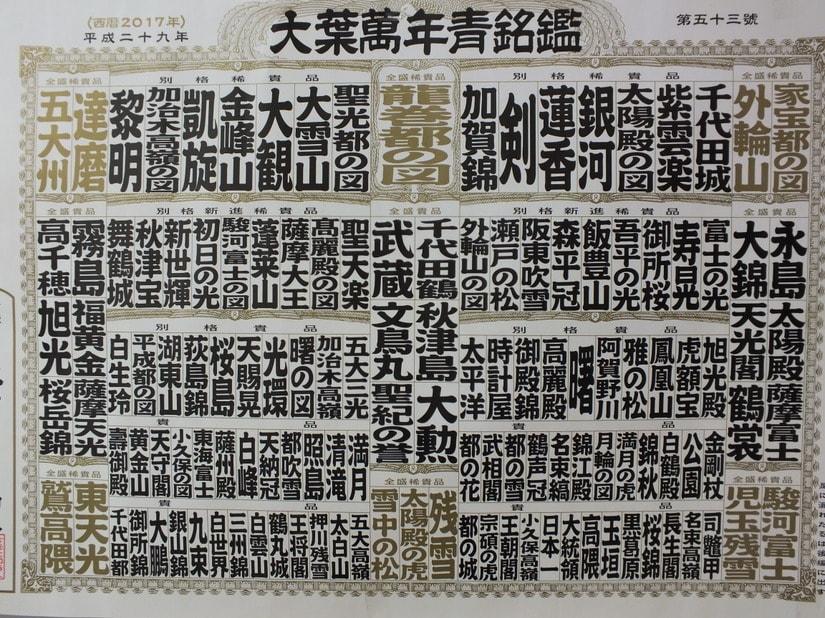 大葉萬年青銘鑑
第五十三號
(西暦2017年)
平成二十九年
全盛稀貴品
家宝都の図
外輪山
別格稀貴品
千代田城
紫雲楽
太陽殿の図
銀河
蓮香
剣
加賀錦
全盛稀貴品
龍巻都の図
別格稀貴品
聖光都の図
大雪山
大観
金峰山
凱旋
加治木高嶺の図
黎明
全盛稀貴品
達磨
五大州
全盛貴品
永島
太陽殿
薩摩富士
大錦
天光閣
鶴裳
別格新進稀貴品
富士の光
寿昌光
御所桜
吾平の光
飯豊山
森平冠
阪東吹雪
瀬戸の松
外輪山の図
全盛貴品
千代田鶴
秋津島
大勲
全盛貴品
武蔵
文鳥丸
聖紀の誉
別格新進稀貴品
聖天楽
高麗殿の図
薩摩大王
蓬莱山
駿河富士の図
初日の光
新世輝
秋津宝
舞鶴城
全盛貴品
霧島
福黄金
薩摩天光
高千穂
旭光
桜岳錦
別格貴品
旭光殿
虎額宝
鳳凰山
雅の松
阿賀野川
曙
高麗殿
御殿錦
時計屋
太平洋
別格貴品
五大三光
加治木高嶺
曙の図
光環
天賜晃
桜島
荻島錦
湖東山
平成都の図
白生玲
金剛杖
公園
白鶴殿
錦秋
満月の虎
月輪の図
錦江殿
名東縞
鶴声冠
都の雪
武相閣
都の花
満月
清滝
照島
都吹雪
天納冠
白峰
薩州殿
東海富士
小久保の図
天守閣
黄金山
壽御殿
全盛稀貴品
駿河富士
児玉残雪
貴品
司鼈甲
名東高嶺
長生殿
桜錦
黒葛原
玉垣
高隈
大統領
日本一
小久保高嶺
王朝閣
宗碩の虎
都の城
全盛稀貴品
残雪
太陽殿の虎
全盛稀貴品
雪中の松
貴品
五大高嶺
押川残雪
太白山
王将閣
鶴丸城
白雲山
三州錦
白世界
九東
銀山錦
大鵬
御所錦
千代田都
全盛稀貴品
東天光
鷲高隈